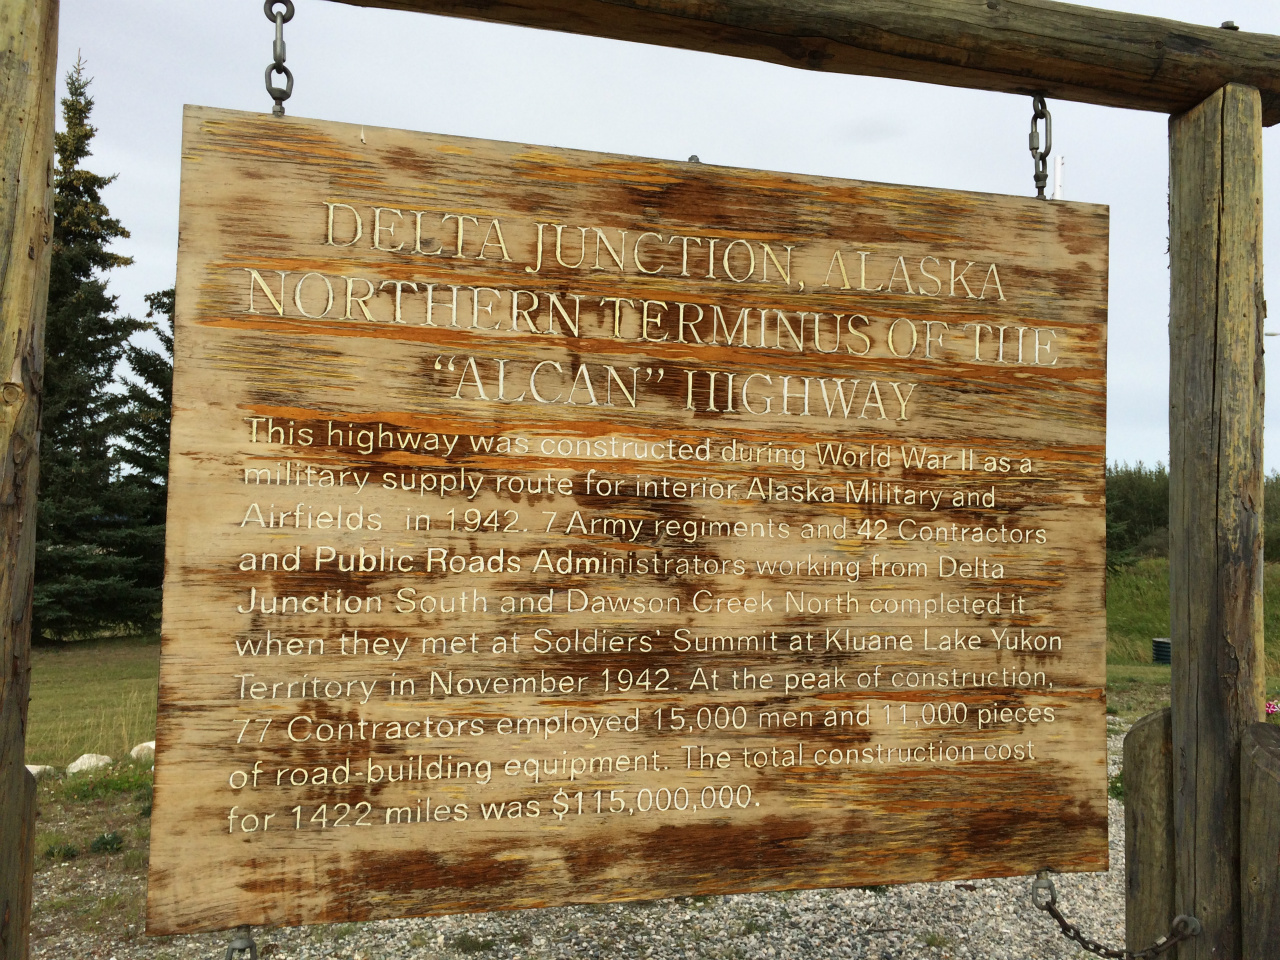 DELTA JUNCTION, ALASKA
NORTHERN TERMINUS OF THE
“ALCAN” HIGHWAY
This highway was constructed during World War II as a
military supply route for interior Alaska Military and
Airfields in 1942. 7 Army regiments and 42 Contractors
and Public Roads Administrators working from Delta
Junction South and Dawson Creek North completed it
when they met at Soldiers' Summit at Kluane Lake Yukon
Territory in November 1942. At the peak of construction,
77 Contractors employed 15,000 men and 11,000 pieces
of road-building equipment. The total construction cost
for 1422 miles was $115,000,000.